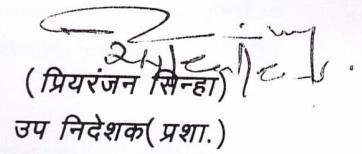 ( प्रियरंजन सिन्हा)
उप निदेशक( प्रशा.)